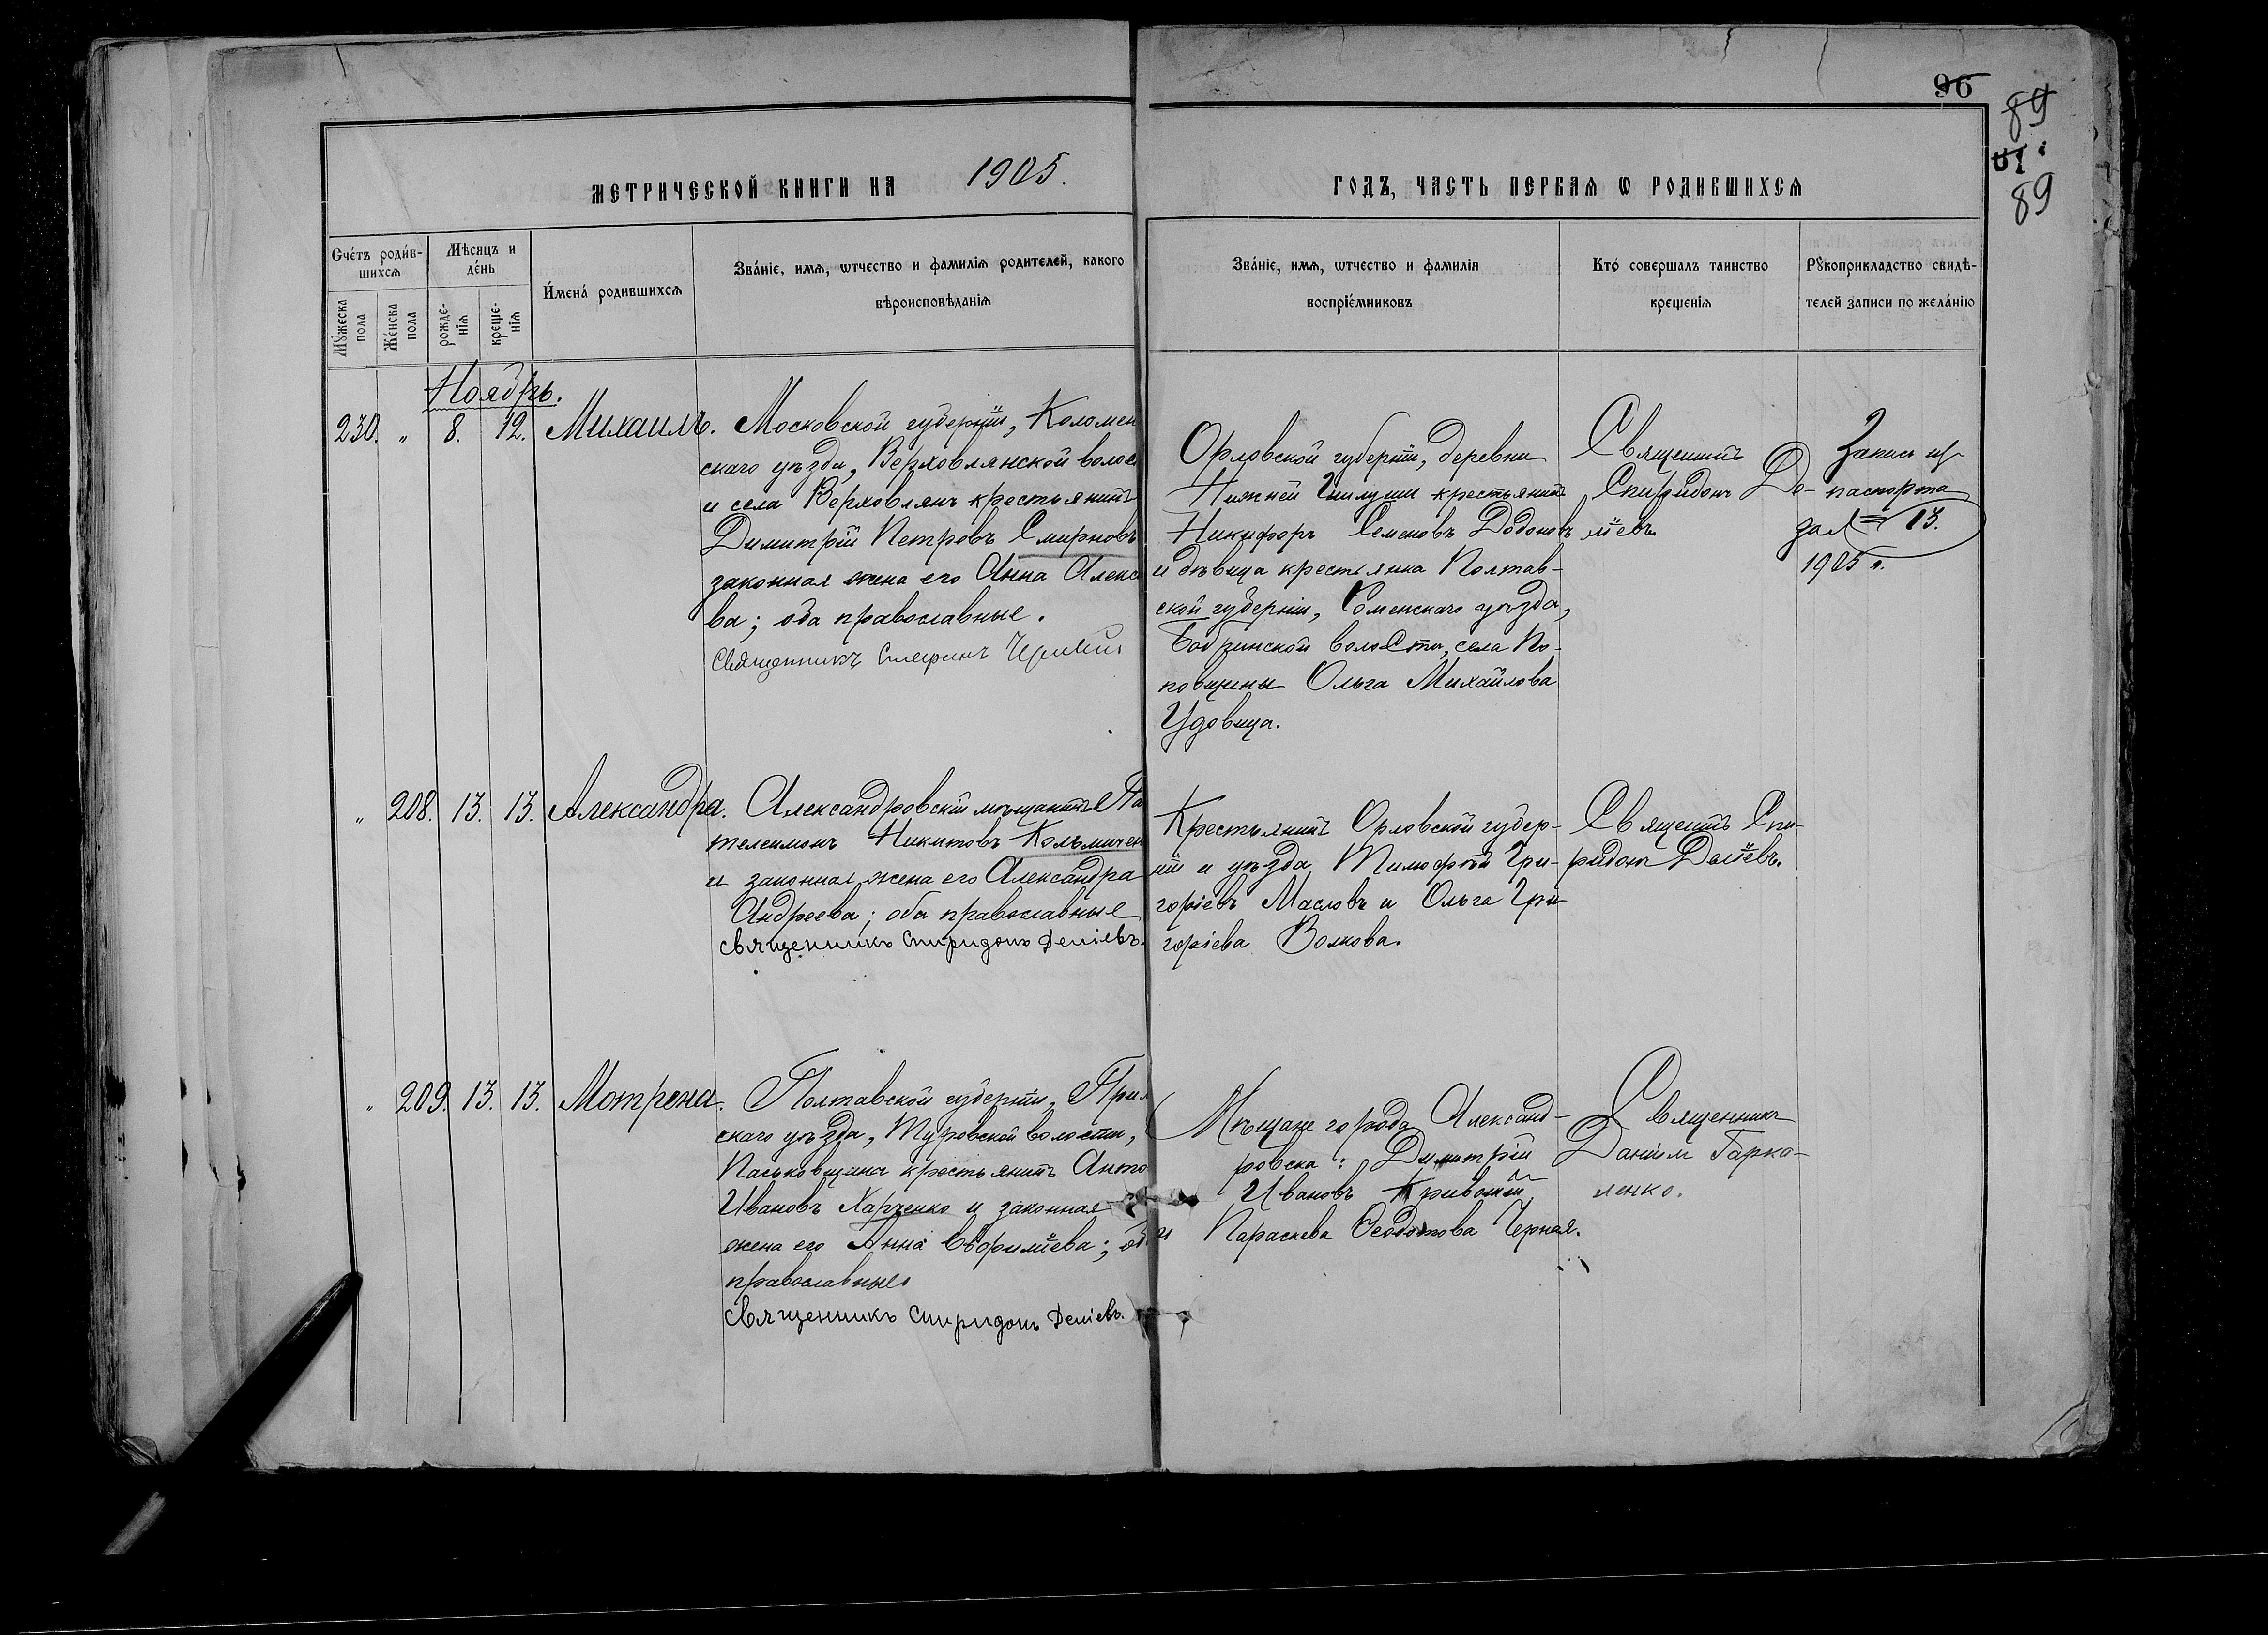 96
89
91
89
МЕТРИЧЕСКОЙ КНИГИ НА 1905.
ГОДЪ, ЧАСТЬ ПЕРВАѦ Ѡ РОДИВШИХСѦ
Счéтъ роди́в-
шихсѧ
Мꙋжеска пола
Же́нска пола
Мѣ́сяцъ и
де́нь
рожде-
нїѧ
креще-
нїѧ
И́мена́ родившихсѧ
Зва́нїе, имѧ, ѡтчество и фамилїѧ родителей, какого
вѣроисповѣданїѧ
Зва́нїе, имѧ, ѡтчество и фамилїѧ
воспрїе́мниковъ
Кто́ совершалъ таинство
крещенїѧ
Рꙋкоприкладство свидѣ-
телей записи по жела́нїю
Ноябрь.
230. " 8. 12. Михаилъ.
Московской губерніи, Коломен
скаго уѣзда, Верховлянской волос
и села Верховлянъ крестьянинъ
Димитрій Петровъ Смирновъ
законная жена его Анна Алекс
ва; оба православные.
Священникъ
Орловской губерніи, деревни
Нижней крестьянинъ
Никифоръ Семеновъ Додоновъ
и дѣвица крестьянка Полтав-
ской губерніи, Роменскаго уѣзда,
Бобринской волости, села По-
повщины Ольга Михайлова
Удовица.
Священникъ
Спиридонъ Де-
міевъ.
Запись из
паспорта
за № 13.
1905 г.
" 208. 13. 13. Александра.
Александровскій мѣщанинъ Па
телеимонъ Никитовъ
и законная жена его Александра
Андреева; оба православные
священникъ Спиридонъ Деміевъ.
Крестьянинъ Орловской губер-
ніи и уѣзда Тимофѣй Гри-
горіевъ Масловъ и Ольга Гри
горіева Волкова.
Священникъ Спи-
ридонъ Деміевъ.
" 209. 13. 13. Мотрона.
Полтавской губерніи, Прил
скаго уѣзда, Туровской волости,
Паськовщина крестьянинъ Анто
Ивановъ Харченко и законная
жена его Анна Евфиміева; об
православные
священникъ Спиридонъ Деміевъ.
Мѣщане города Александ-
ровска: Димитрій
Ивановъ
и Параскева Ѳеодотова Черная.
Священникъ
Даніилъ Гарко-
ленко.